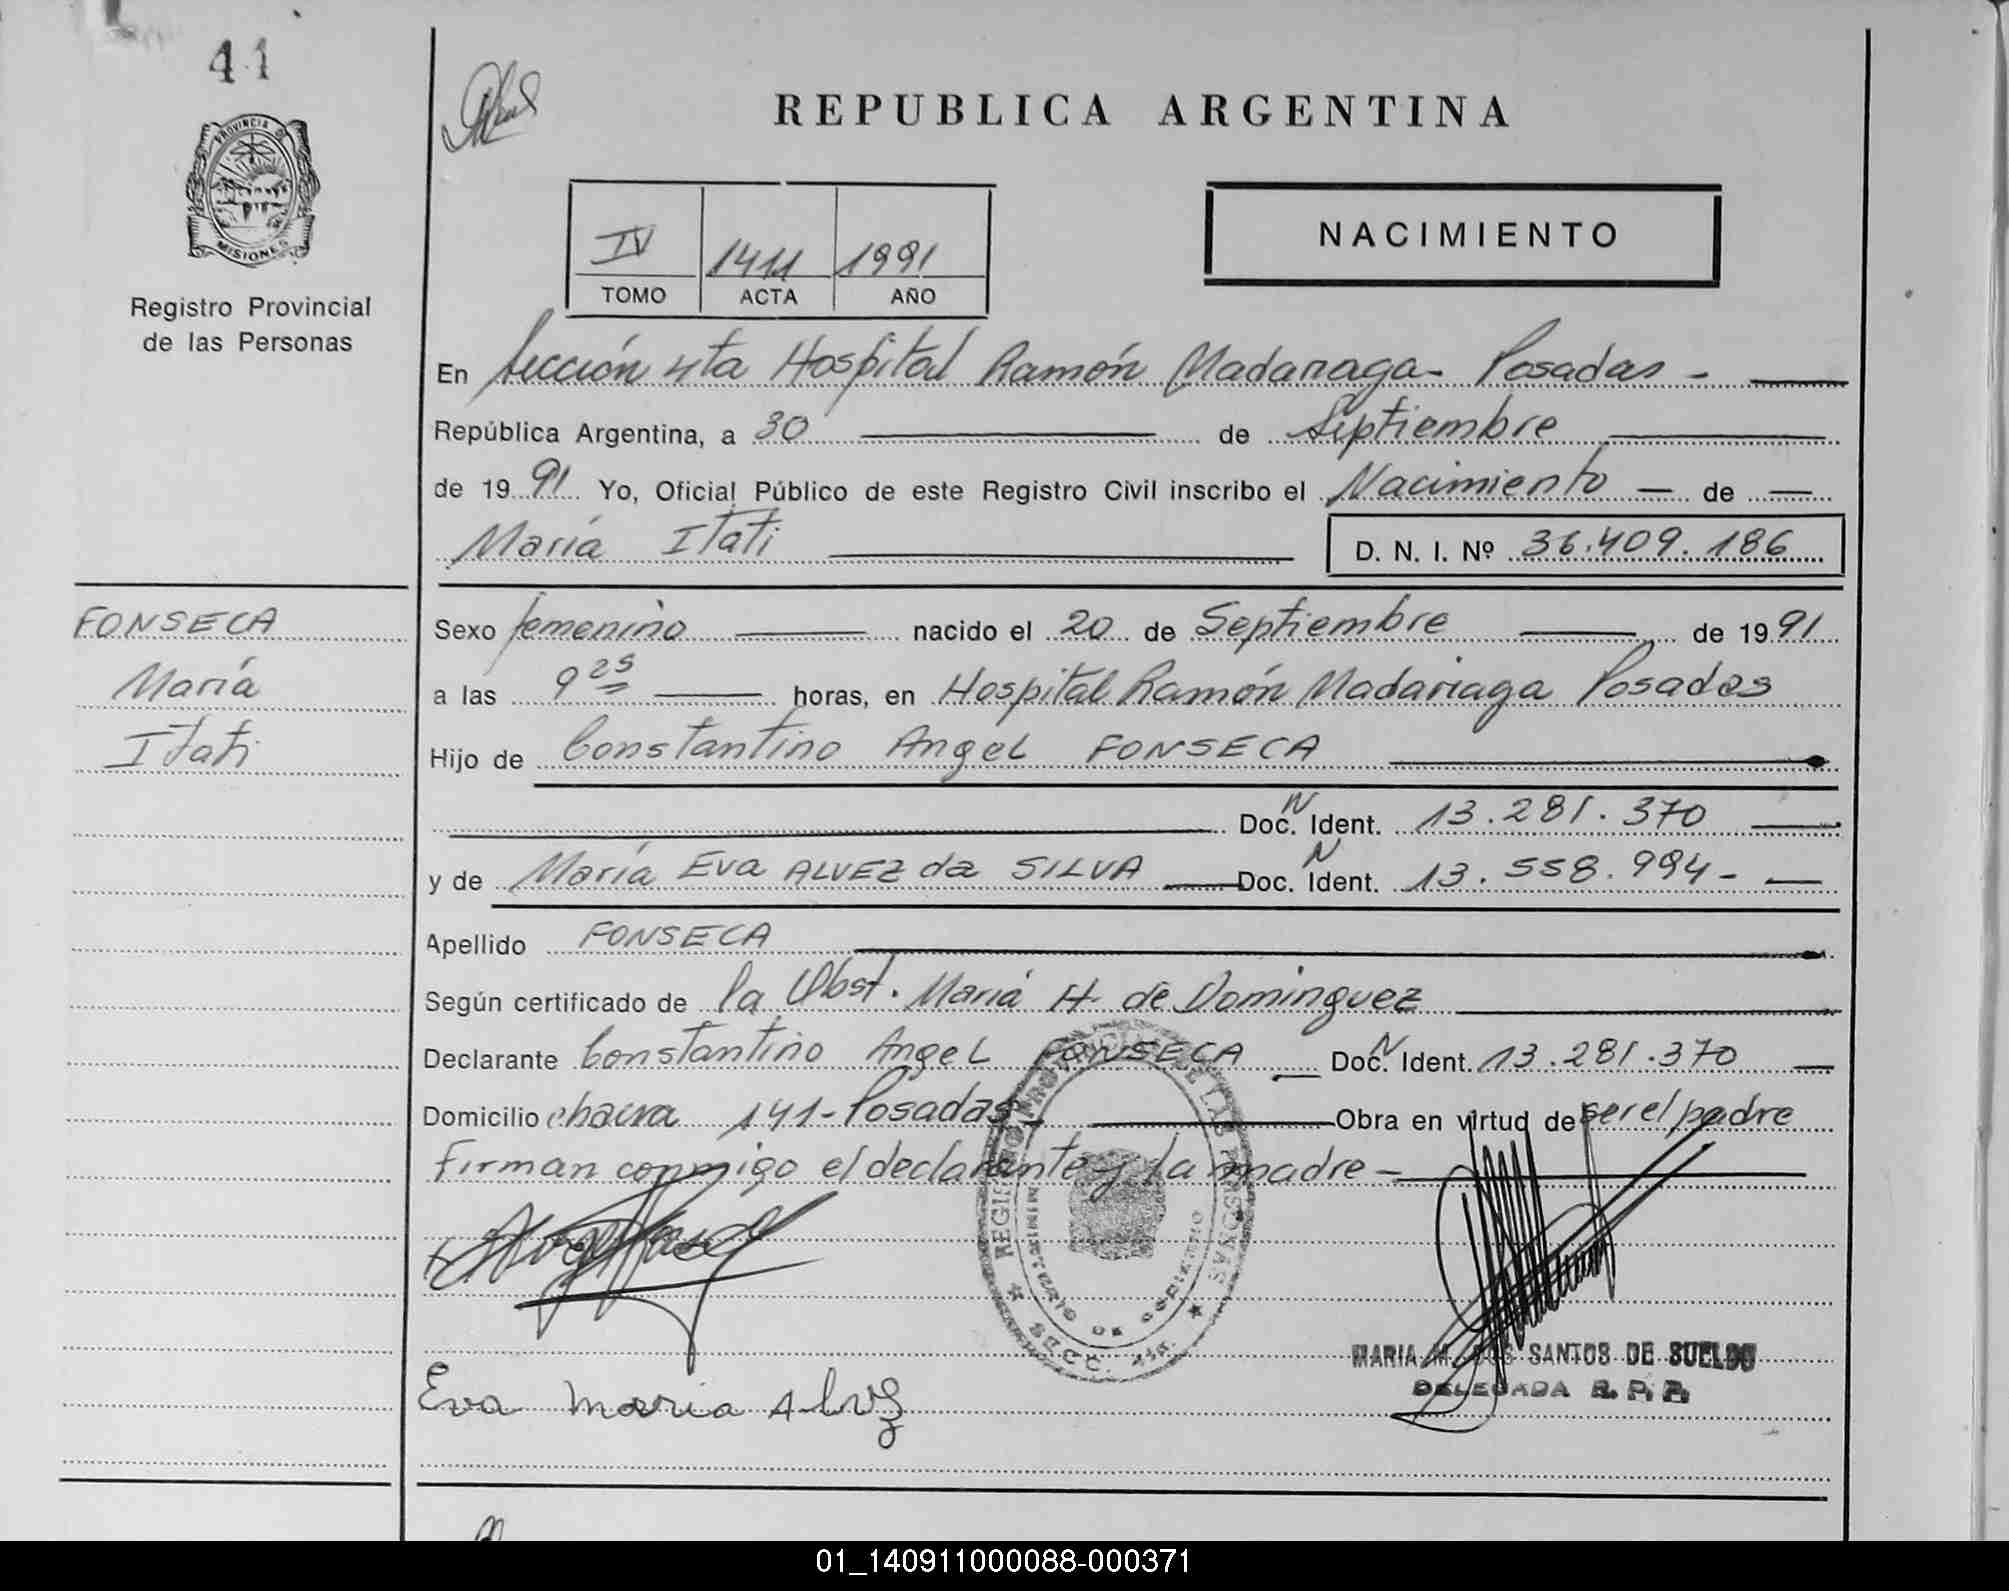 41
REPUBLICA ARGENTINA
PROVINCIA D
MISIONES
Registro Provincial
de las Personas
NACIMIENTO
IV 1411 1991
TOMO ACTA AÑO
En Sección 4ta Hospital Ramón Madariaga - Posadas -
República Argentina, a 30 de Septiembre
de 1991 Yo, Oficial Público de este Registro Civil inscribo el Nacimiento - de -
María Itati D. N. I. Nº 36.409.186
FONSECA
María
Itati
Sexo femenino nacido el 20 de Septiembre de 1991
a las 9 25 horas, en Hospital Ramón Madariaga Posadas
Hijo de Constantino Angel FONSECA
Doc. N Ident. 13.281.370
y de María Eva ALVEZ da SILVA Doc. N Ident. 13.558.994 -
Apellido FONSECA
Según certificado de la Obst. María H. de Dominguez
Declarante Constantino Angel FONSECA Doc. N Ident. 13.281.370
Domicilio chacra 141 - Posadas Obra en virtud de ser el padre
Firman conmigo el declarante y la madre -
REGISTRO PROVINCIAL DE LAS PERSONAS
MINISTERIO DE GOBIERNO
SECC. 4ta.
MARIA M. DOS SANTOS DE SUELDO
DELEGADA R. P. P.
Eva maria Alvez
01_140911000088-000371